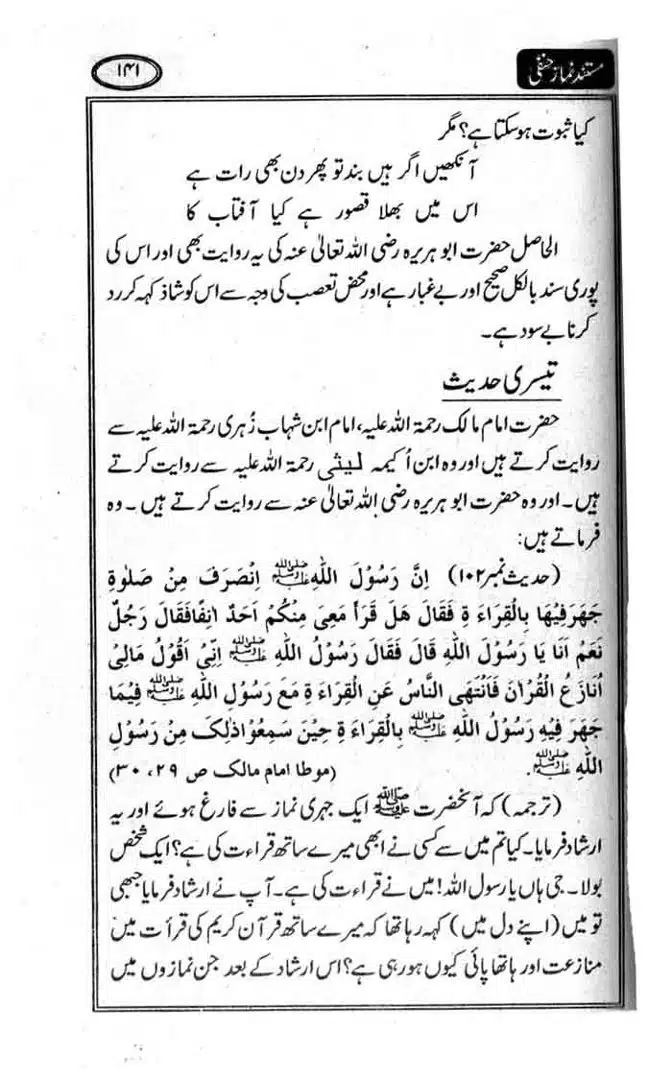 مستند نماز حنفی
۱۴۱
کیا ثبوت ہوسکتا ہے؟ مگر
آنکھیں اگر ہیں بند تو پھر دن بھی رات ہے
اس میں بھلا قصور ہے کیا آفتاب کا
الحاصل حضرت ابو ہریرہ رضی اللہ تعالیٰ عنہ کی یہ روایت بھی اور اس کی
پوری سند بالکل صحیح اور بے غبار ہے اور محض تعصب کی وجہ سے اس کو شاذ کہہ کر رد
کرنا بے سود ہے۔
تیسری حدیث
حضرت امام مالک رحمۃ اللہ علیہ، امام ابن شہاب زُہری رحمۃ اللہ علیہ سے
روایت کرتے ہیں اور وہ ابن اُکیمہ لیثی رحمۃ اللہ علیہ سے روایت کرتے
ہیں۔ اور وہ حضرت ابو ہریرہ رضی اللہ تعالیٰ عنہ سے روایت کرتے ہیں۔ وہ
فرماتے ہیں:
(حدیث نمبر ۱۰۲) اِنَّ رَسُوْلَ اللهِ ﷺ اِنْصَرَفَ مِنْ صَلٰوةٍ
جَهَرَ فِيْهَا بِالْقِرَاءَ ةِ فَقَالَ هَلْ قَرَأَ مَعِىَ مِنْكُمْ اَحَدٌ اٰنِفًا فَقَالَ رَجُلٌ
نَعَمْ اَنَا يَا رَسُوْلَ اللهِ قَالَ فَقَالَ رَسُوْلُ اللهِ ﷺ اِنِّىْ اَقُوْلُ مَالِىْ
اُنَازَعُ الْقُرْاٰنَ فَانْتَهَى النَّاسُ عَنِ الْقِرَاءَ ةِ مَعَ رَسُوْلِ اللهِ ﷺ فِيْمَا
جَهَرَ فِيْهِ رَسُوْلُ اللهِ ﷺ بِالْقِرَاءَ ةِ حِيْنَ سَمِعُوْا ذٰلِكَ مِنْ رَسُوْلِ
اللهِ ﷺ. (موطا امام مالک ص ۲۹، ۳۰)
(ترجمہ) کہ آنحضرت ﷺ ایک جہری نماز سے فارغ ہوئے اور یہ
ارشاد فرمایا۔ کیا تم میں سے کسی نے ابھی میرے ساتھ قراءت کی ہے؟ ایک شخص
بولا۔ جی ہاں یا رسول اللہ! میں نے قراءت کی ہے۔ آپ نے ارشاد فرمایا جبھی
تو میں (اپنے دل میں) کہہ رہا تھا کہ میرے ساتھ قرآن کریم کی قرأت میں
منازعت اور ہاتھا پائی کیوں ہورہی ہے؟ اس ارشاد کے بعد جن نمازوں میں